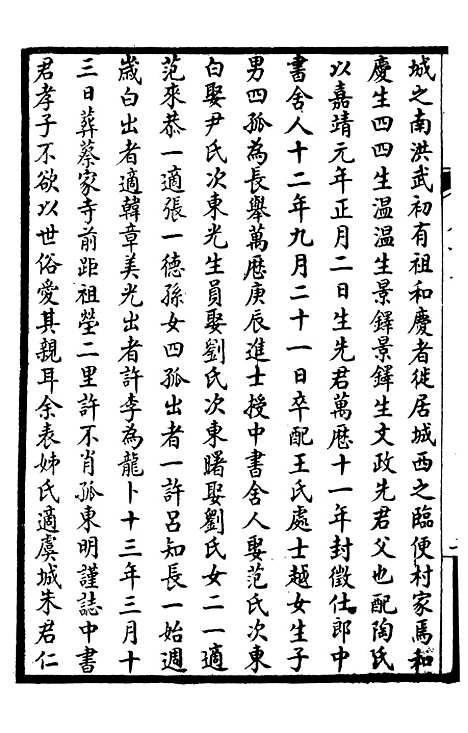 城之南洪武初有祖和慶者徙居城西之臨便村家焉和
慶生四四生温温生景鐸景鐸生文政先君父也配陶氏
以嘉靖元年正月二日生先君萬曆十一年封徵仕郎中
書舍人十二年九月二十一日卒配王氏處士越女生子
男四孤為長舉萬曆庚辰進士授中書舍人娶范氏次東
白娶尹氏次東光生員娶劉氏次東曙娶劉氏女二一適
范來恭一適張一德孫女四孤出者一許呂知長一始週
歲白出者適韓章美光出者許李為龍卜十三年三月十
三日葬蔡家寺前距祖塋二里許不肖孤東明謹誌中書
君孝子不欲以世俗愛其親耳余表姊氏適虞城朱君仁